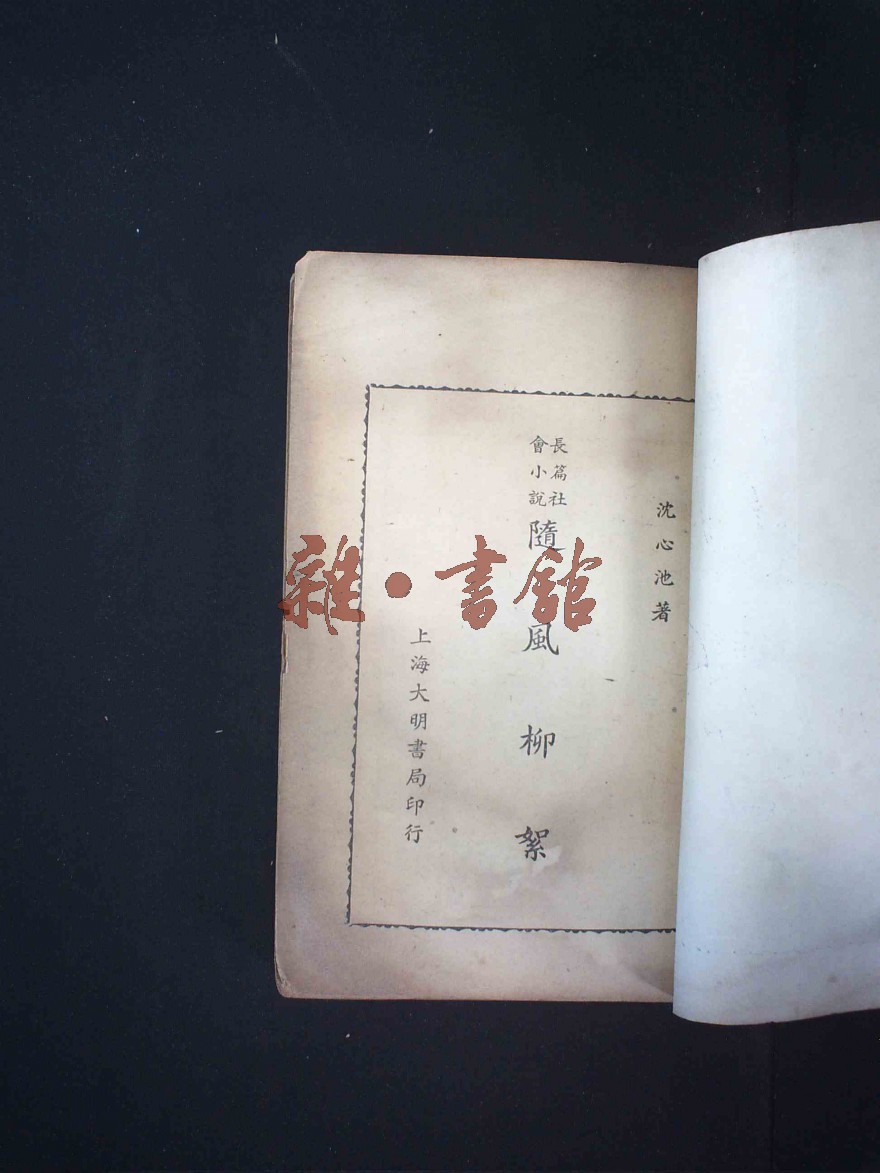 沈心池著
長篇社
會小說
隨風柳絮
上海大明書局印行
雜·書館